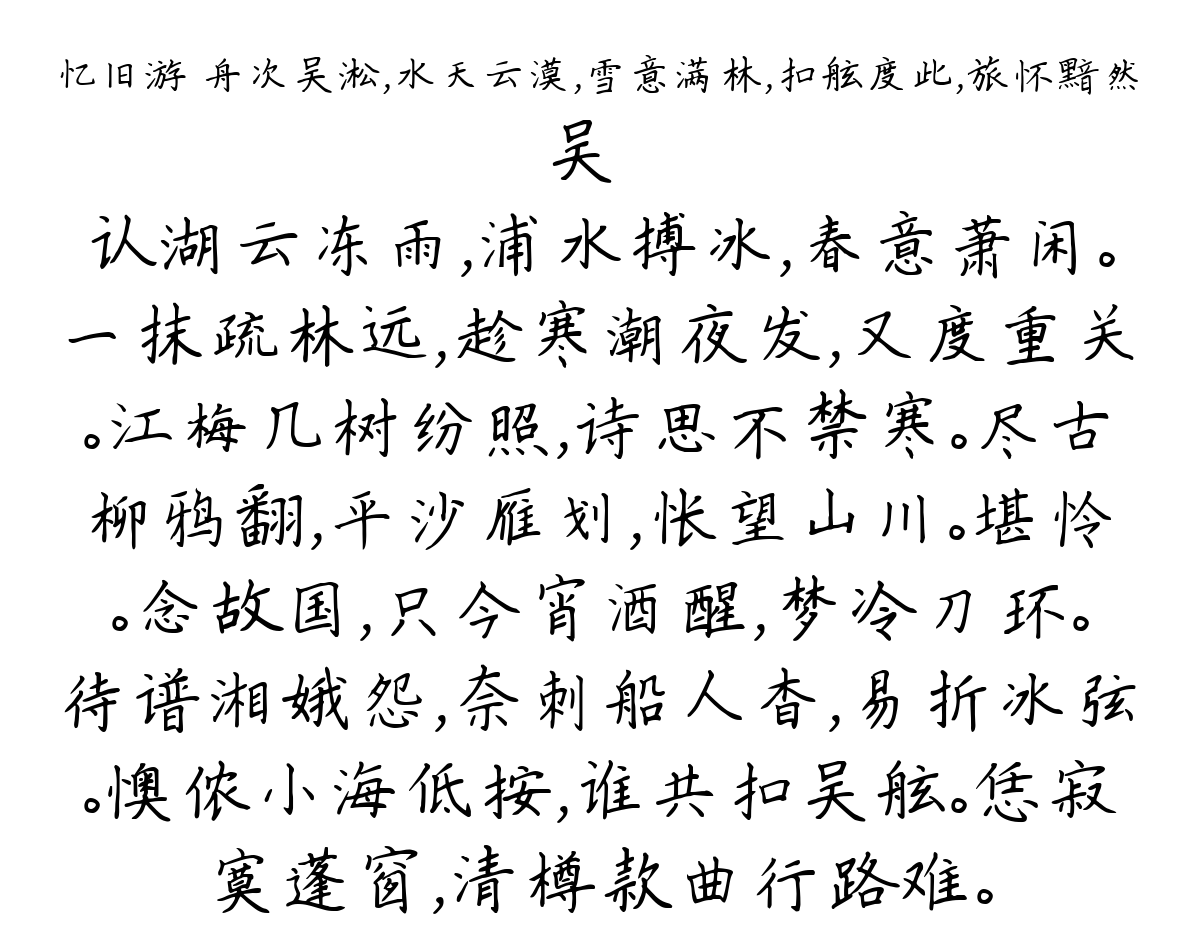 忆旧游 舟次吴淞,水天云漠,雪意满林,扣舷度此,旅怀黯然
吴
认湖云冻雨,浦水搏冰,春意萧闲。
一抹疏林远,趁寒潮夜发,又度重关
。江梅几树纷照,诗思不禁寒。尽古
柳鸦翻,平沙雁划,怅望山川。堪怜
。念故国,只今宵酒醒,梦冷刀环。
待谱湘娥怨,奈刺船人杳,易折冰弦
。懊侬小海低按,谁共扣吴舷。恁寂
寞蓬窗,清樽款曲行路难。